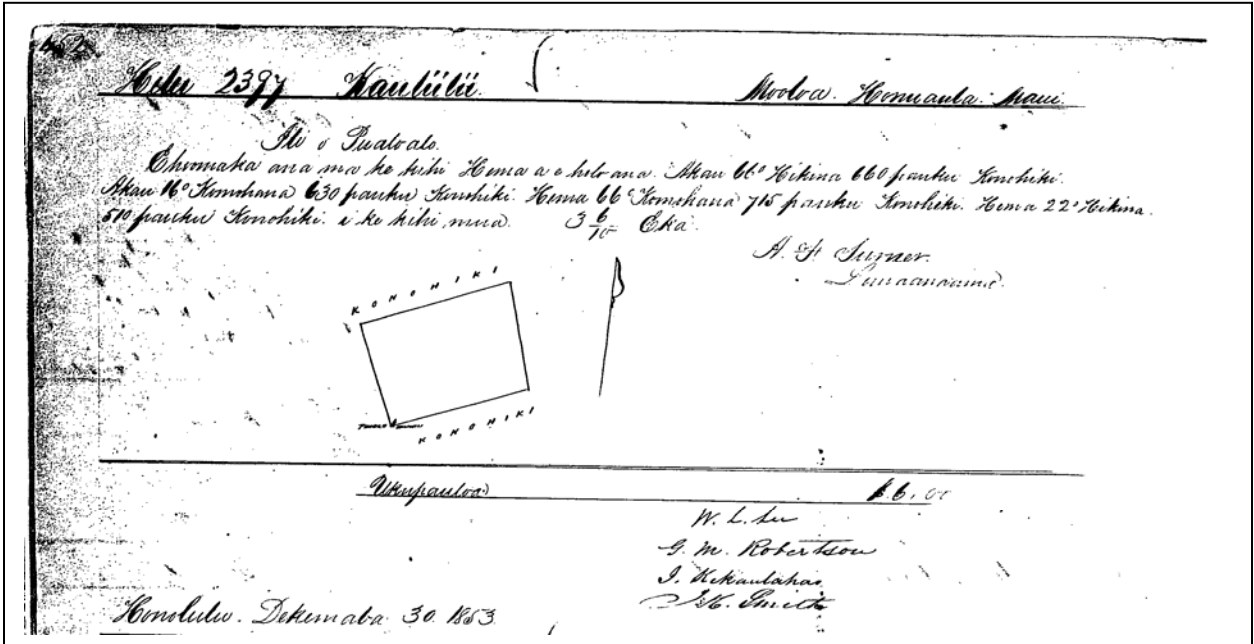 452
Helu 2397 Kauliilii. Mooloa. Honuaula. Maui.
Ili o Pualoalo.
E hoomaka ana ma ke kihi Hema a e holo ana. Akau 66° Hikina 660 pauku Konohiki.
Akau 16° Komohana 630 pauku Konohiki. Hema 66° Komohana 715 pauku Konohiki. Hema 22° Hikina.
510 pauku Konohiki. i ke kihi mua. 3 6/10 Eka.
A. F. Turner.
KONOHIKI
KONOHIKI
Ukupauloa $6.00
W. L. Lee
G. M. Robertson
J. Kekaulahao
J. H. Smith
Honolulu. Dekemaba 30. 1853